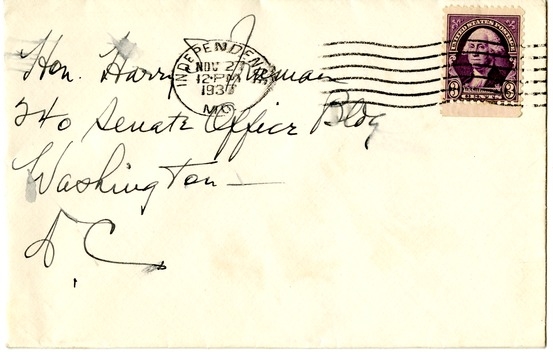 UNITED STATES POSTAGE
3 3
INDEPENDEN
NOV
12-PM
MO.
Hon. Harry Truman
240 Senate Office Bldg
Washington —
D.C.